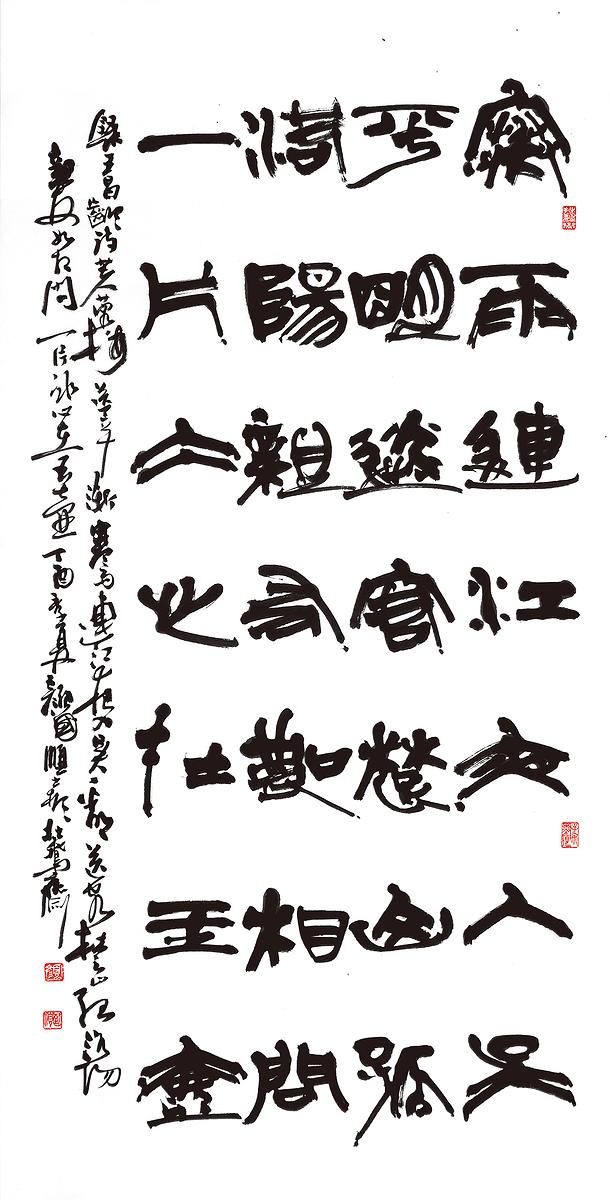 寒雨連江夜入吳
平明送客楚山孤
洛陽親友如相問
一片冰心在玉壺
錄王昌齡詩芙蓉樓送辛漸寒雨連江夜入吳平明送客楚山孤洛陽
親友如相問一片冰心在玉壺丁酉夏國順